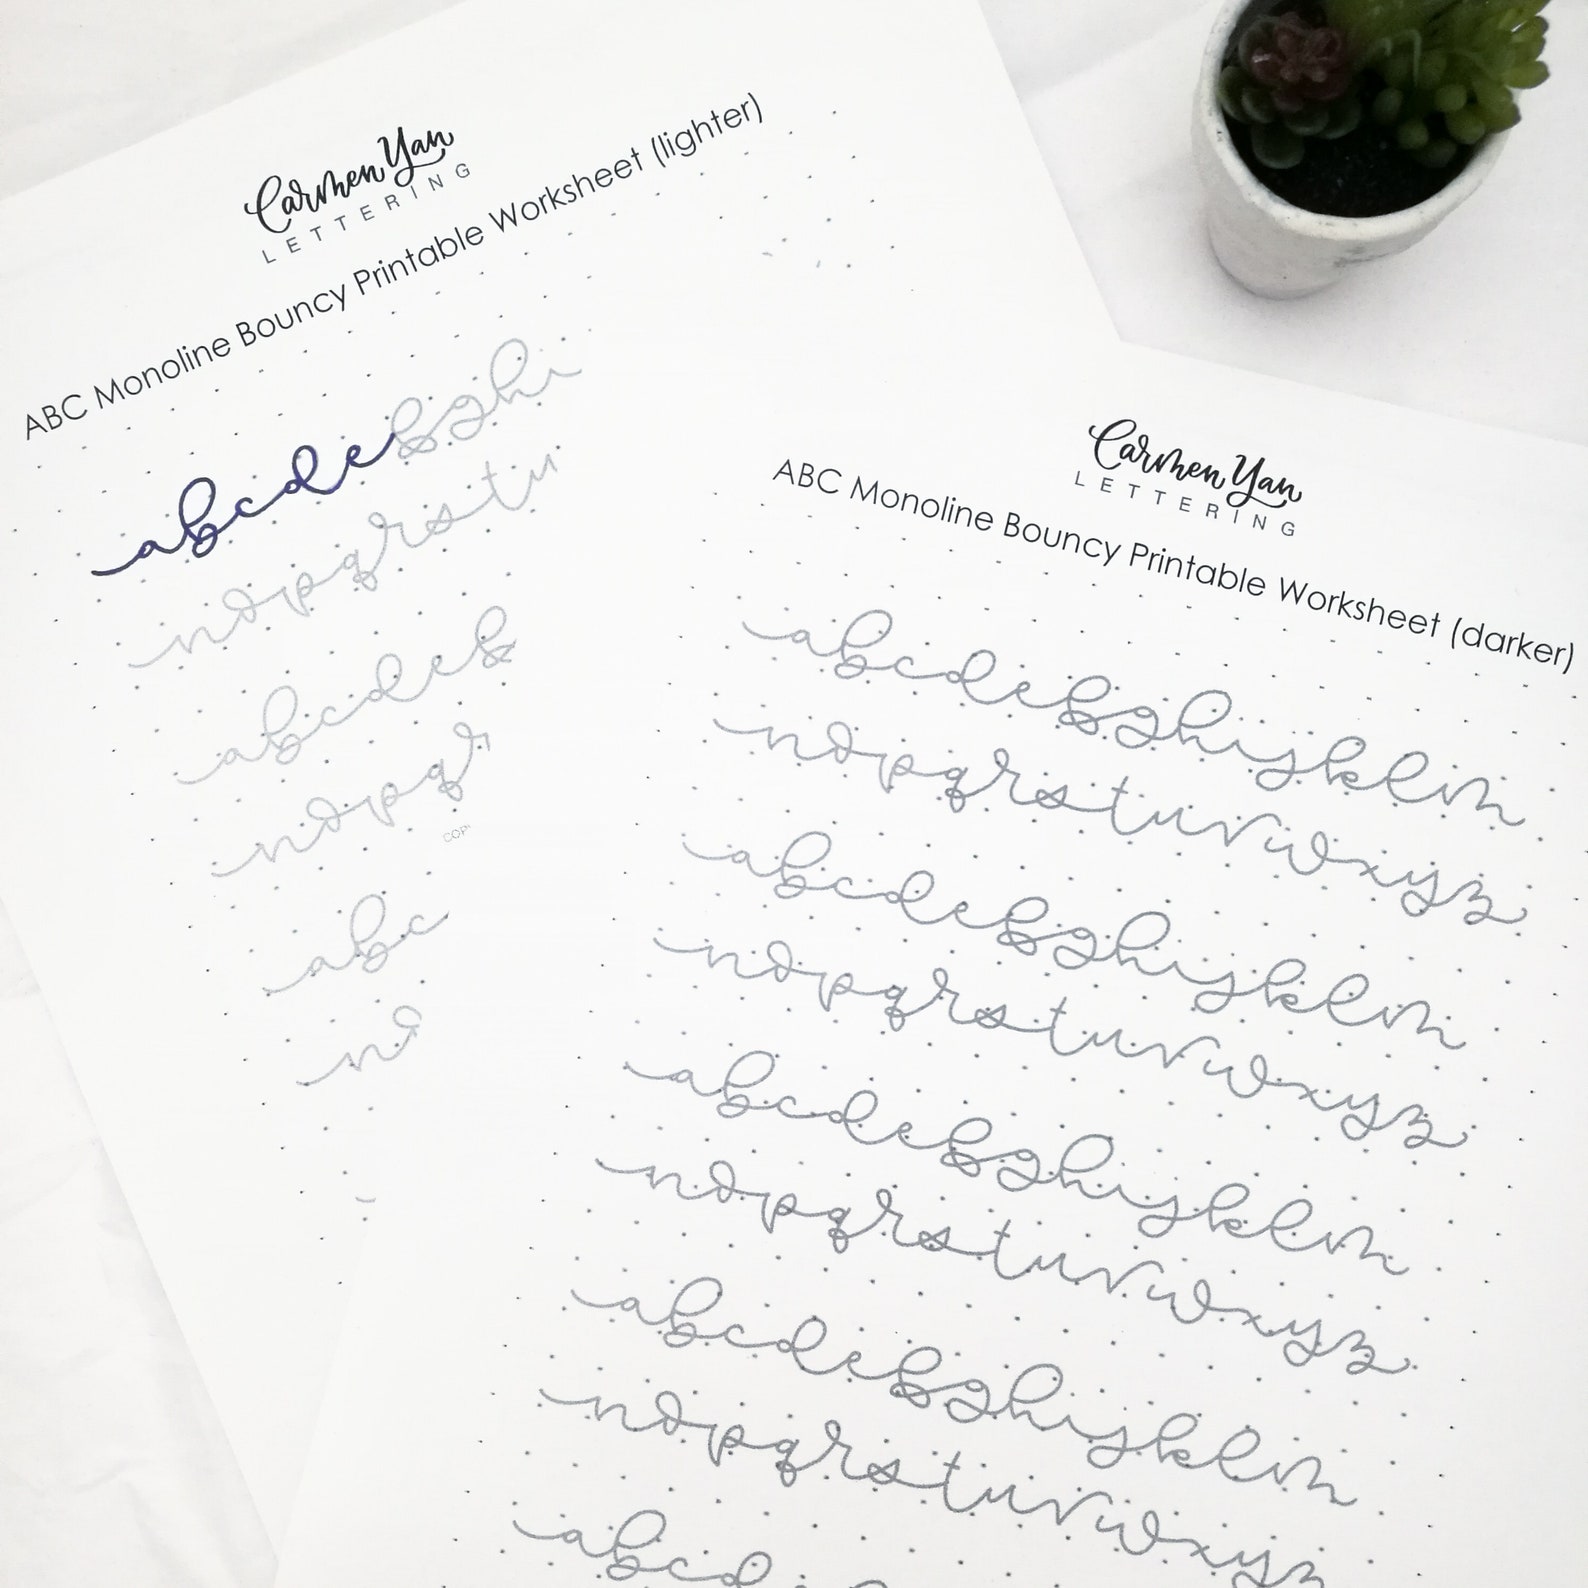 Carmen Yan
LETTERING
ABC Monoline Bouncy Printable Worksheet (lighter)
abcdefghi
nopqrstu
abcdef
nopqr
COP
abc
no
Carmen Yan
LETTERING
ABC Monoline Bouncy Printable Worksheet (darker)
abcdefghijklm
nopqrstuvwxyz
abcdefghijklm
nopqrstuvwxyz
abcdefghijklm
nopqrstuvwxyz
abcdefghijklm
nopqrstuvwxyz
abcd